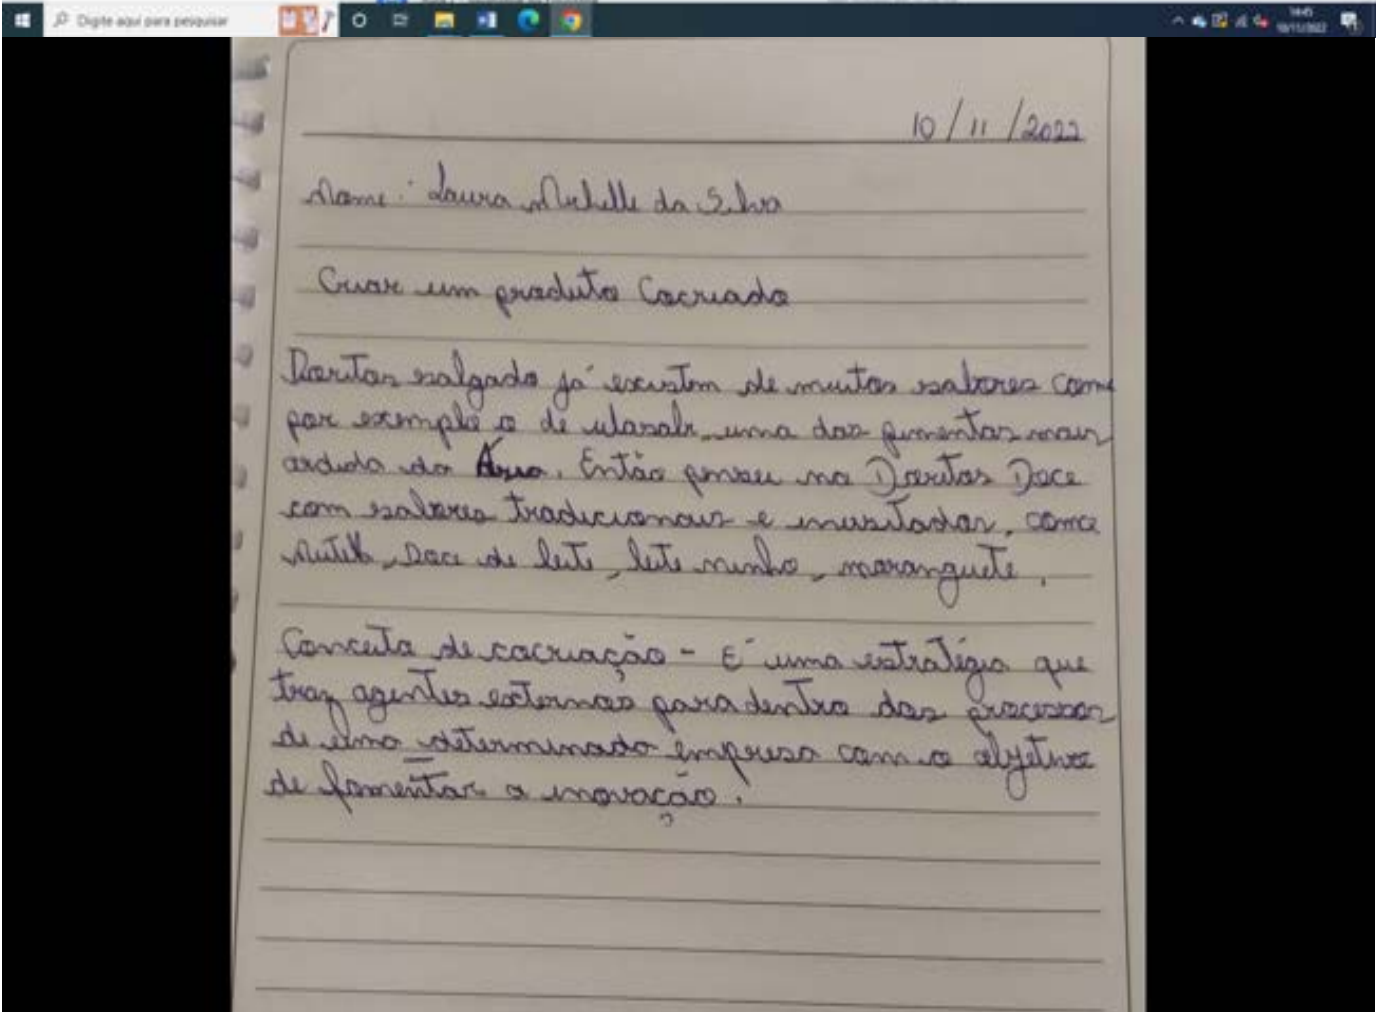 Digite aqui para pesquisar
14:45
10/11/2022
10/11/2022
Nome: Laura Michelle da Silva
Criar um produto Cocriado
Doritos salgado já existem de muitos sabores como
por exemplo o de wasabi, uma das pimentas mais
ardida da Ásia. Então pensei no Doritos Doce
com sabores tradicionais e inusitados, como
Nutella, Doce de leite, leite ninho, moranguete.
Conceito de cocriação - É uma estratégia que
traz agentes externos para dentro dos processos
de uma determinado empresa com o objetivo
de fomentar a inovação.